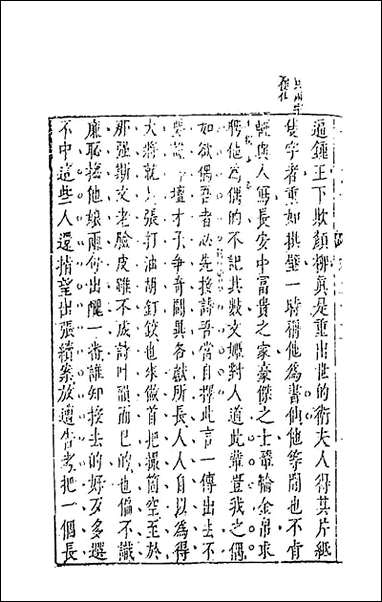 逼鍾王下欺顏柳真是重出世的衛夫人得其片紙
隻字者重如拱璧一時稱他為書仙他等閒也不肯
輕與人寫長安中富貴之家豪傑之士輦輸金帛求
聘他為偶的不記其數文姬對人道此輩豈我之偶
如欲偶吾者必先投詩吾當自擇此言一傳出去不
要說吟壇才子爭奇鬭異各獻所長人人自以為得
大將就是張打油胡釘鉸也來做首把撮箇空至於
那强斯文老臉皮雖不成詩叶韻而已的也偏不識
廉恥搊他娘兩句出醜一番誰知投去的好歹多選
不中這些人還指望出張續案放遭告考把一個長